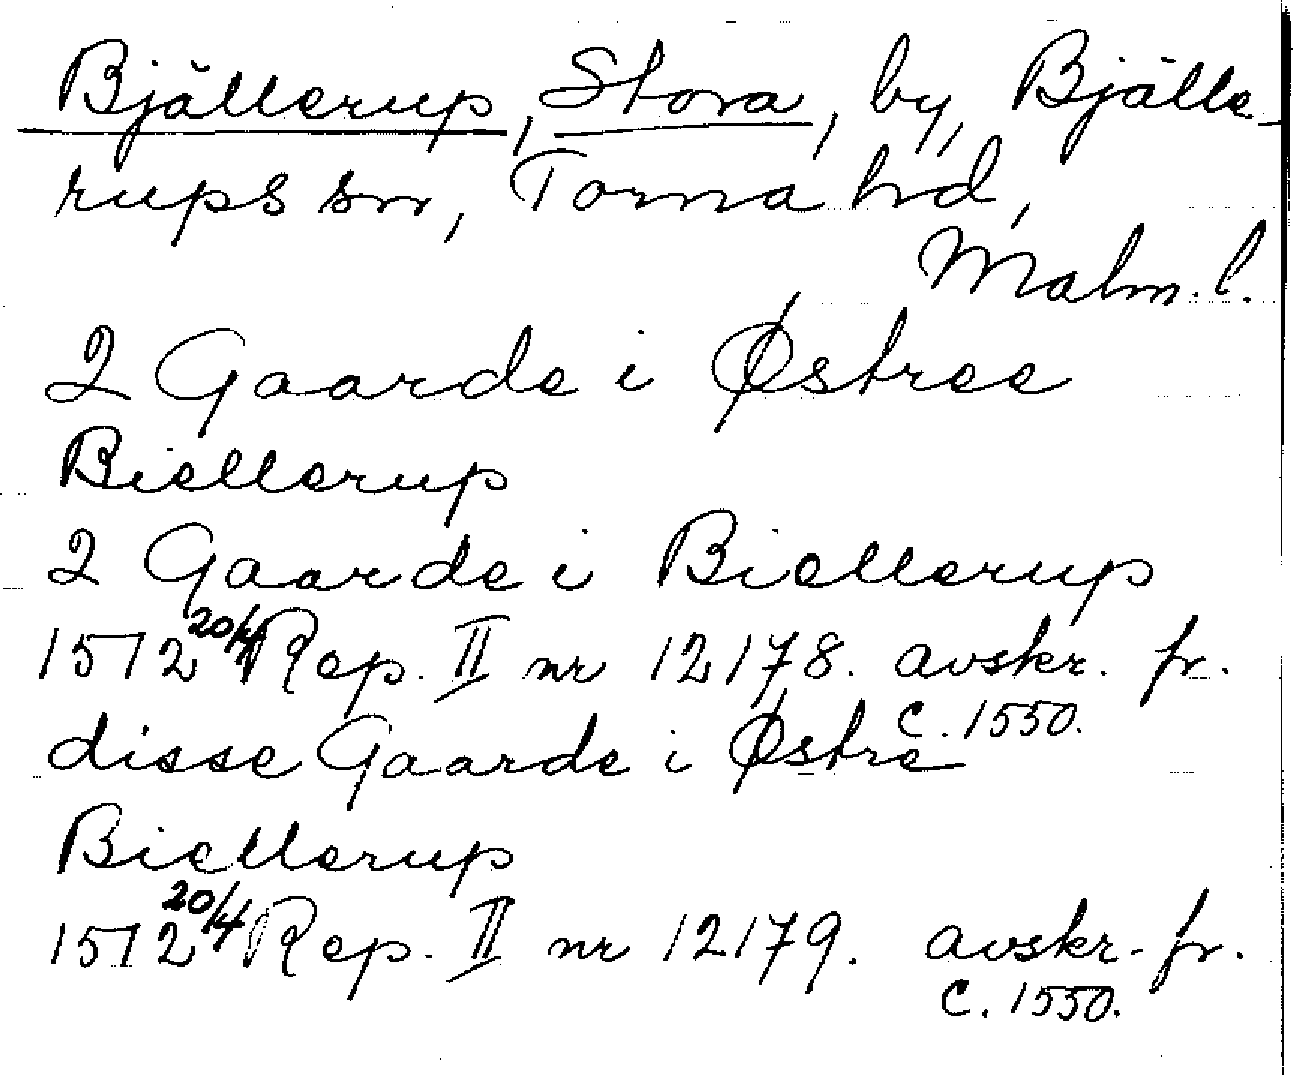 Bjällerup, Stora, by, Bjälle-
rups sn, Torna hd,
Malm. l.
2 Gaarde i Østree
Biellerup
2 Gaarde i Biellerup
1572 20/4 Rep. II nr 12178. avskr. fr.
c. 1550.
disse Gaarde i Østre
Biellerup
1572 20/4 Rep. II nr 12179. avskr. fr.
c. 1550.